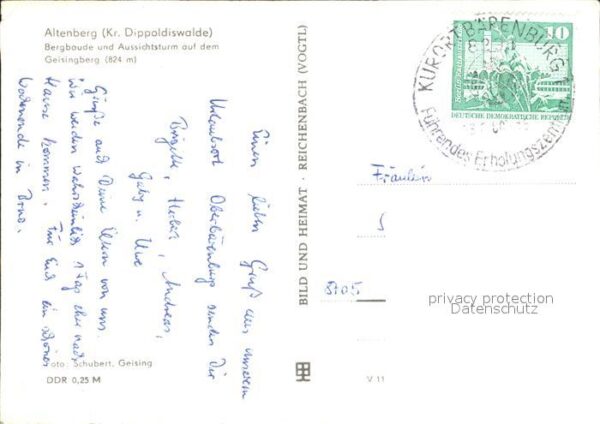 Altenberg (Kr. Dippoldiswalde)
Bergbaude und Aussichtsturm auf dem
Geisingberg (824 m)
Einen lieben Gruß aus unserem
Urlaubsort Oberbärenburg senden Dir
Brigitte, Heiber, Andreas,
Gaby u. Uwe
Grüße auch Deine Eltern von uns.
Wir werden wahrscheinlich 1 Tag eher nach
Hause kommen. Für Euch ein schönes
Wochenende in Brno.
Foto: Schubert, Geising
DDR 0,25 M
BILD UND HEIMAT · REICHENBACH (VOGTL)
V 11
KURORT BÄRENBURG
Führendes Erholungszentrum
10
DEUTSCHE DEMOKRATISCHE REPUBLIK
Fräulein
8705
privacy protection
Datenschutz